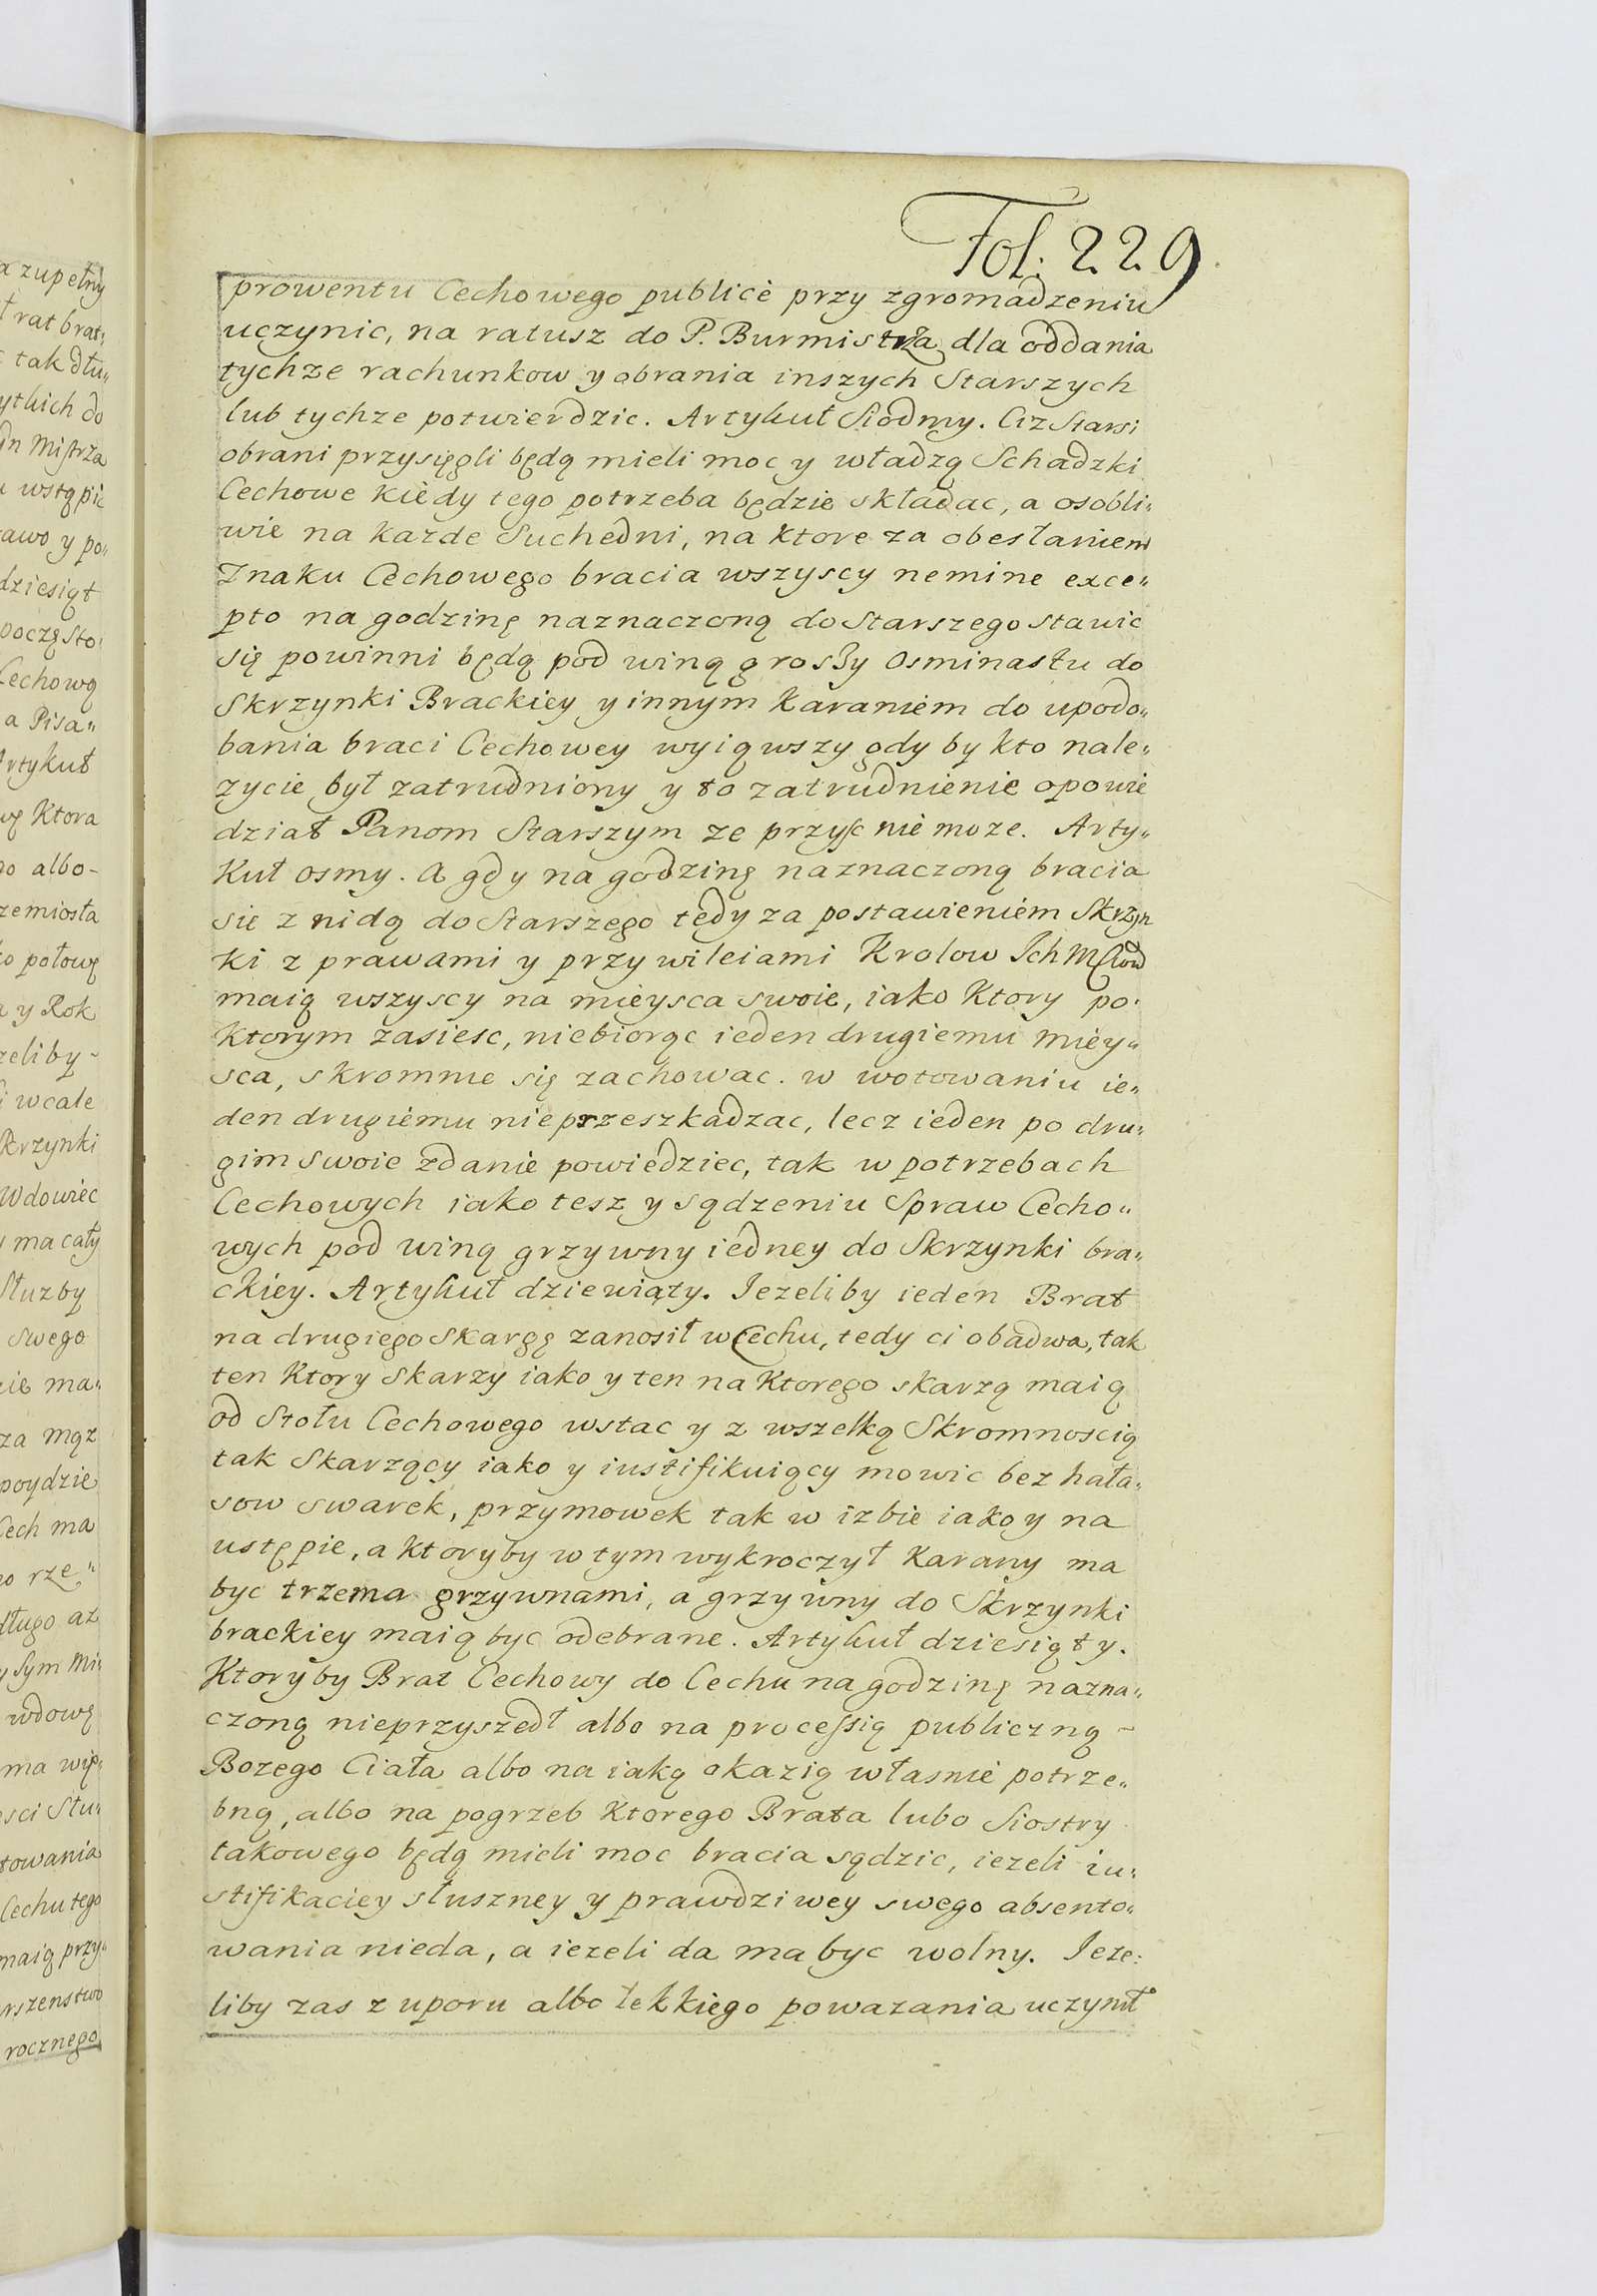 a zupełny
trat brat„
tak dłu„
ytkich do
dn Mistrza
wstąpić
awo y po„
dziesiąt
poczęsto„
Cechową
a Pisa„
Artykuł
wę Ktora
do albo-
zemiosła
o połowę
a y Rok
zeliby-
i wcale
Skrzynki
Wdowiec
y ma cały
Służby
swego
cie ma„
za mąz
poydzie
Cech ma
o rze„
długo az
y Sym Mi„
wdowę
ma wię„
sci Słu„
towania
Cechu tego
maią przy„
rszenstwo
rocznego
Fol: 229
prowentu Cechowego publicè przy zgromadzeniu
uczynic, na ratusz do P. Burmistrza dla oddania
tychze rachunkow y obrania inszych Starszych
lub tychze potwierdzic. Artykuł Siodmy. Ciz Starsi
obrani przysięgli będą mieli moc y władzą Schadzki
Cechowe kiedy tego potrzeba będzie składac, a osobli„
wie na kazde Suchedni, na ktore za obesłaniem
Znaku Cechowego bracia wszyscy nemine exce„
pto na godzinę naznaczoną do Starszego stawic
się powinni będą pod winą groszy Osminastu do
Skrzynki Brackiey y innym Karaniem do upodo„
bania braci Cechowey wyiąwszy gdy by kto nale„
zycie był zatrudniony y to zatrudnienie opowie
dział Panom Starszym ze przysc nie moze. Arty„
Kuł osmy. A gdy na godzinę naznaczoną bracia
sie znidą do Starszego tedy za postawieniem Skrzyn
ki z prawami y przywileiami Krolow Ich Mciow
maią wszyscy na mieysca swoie, iako Ktory po„
Ktorym zasiesc, niebiorąc ieden drugiemu miey„
sca, skromnie się zachowac. w wotowaniu ie„
den drugiemu nieprzeszkadzac, lecz ieden po dru„
gim swoie zdanie powiedziec, tak w potrzebach
Cechowych iako tesz y sądzeniu Spraw Cecho„
wych pod winą grzywny iedney do Skrzynki bra„
ckiey. Artykuł dziewiąty. Iezeliby ieden Brat
na drugiego Skargę zanosił w Cechu, tedy ci obadwa, tak
ten Ktory Skarzy iako y ten na Ktorego skarzą maią
od Stołu Cechowego wstac y z wszelką Skromnoscią
tak Skarzący iako y iustifikuiący mowic bez hała„
sow swarek, przymowek tak w izbie iako y na
ustępie, a ktoryby w tym wykroczył Karany ma
byc trzema grzywnami, a grzywny do Skrzynki
brackiey maią byc odebrane. Artykuł dziesiąty.
Ktoryby Brat Cechowy do Cechu na godzinę nazna„
czoną nieprzyszedł albo na processią publiczną -
Bozego Ciała albo na iaką okazią własnie potrze„
bną, albo na pogrzeb Ktorego Brata lubo Siostry
takowego będą mieli moc bracia sądzic, iezeli iu„
stifikaciey słuszney y prawdziwey swego absento„
wania nieda, a iezeli da ma byc wolny. Ieze„
liby zas z uporu albo lekkiego powazania uczynił